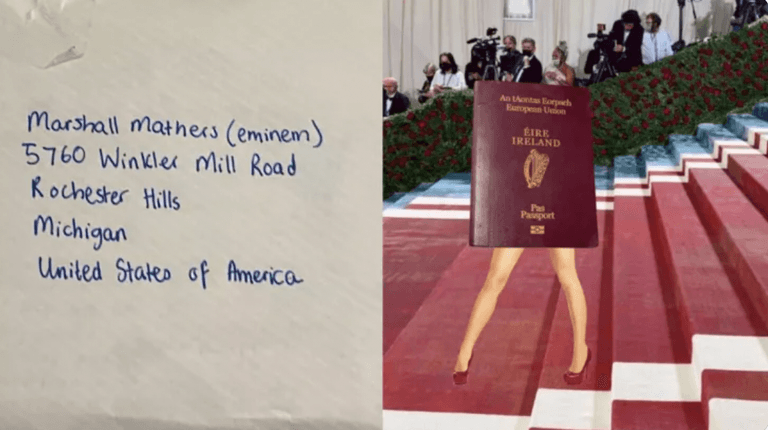 Marshall Mathers (eminem)
5760 Winkler Mill Road
Rochester Hills
Michigan
United States of America
An tAontas Eorpach
European Union
ÉIRE
IRELAND
Pas
Passport